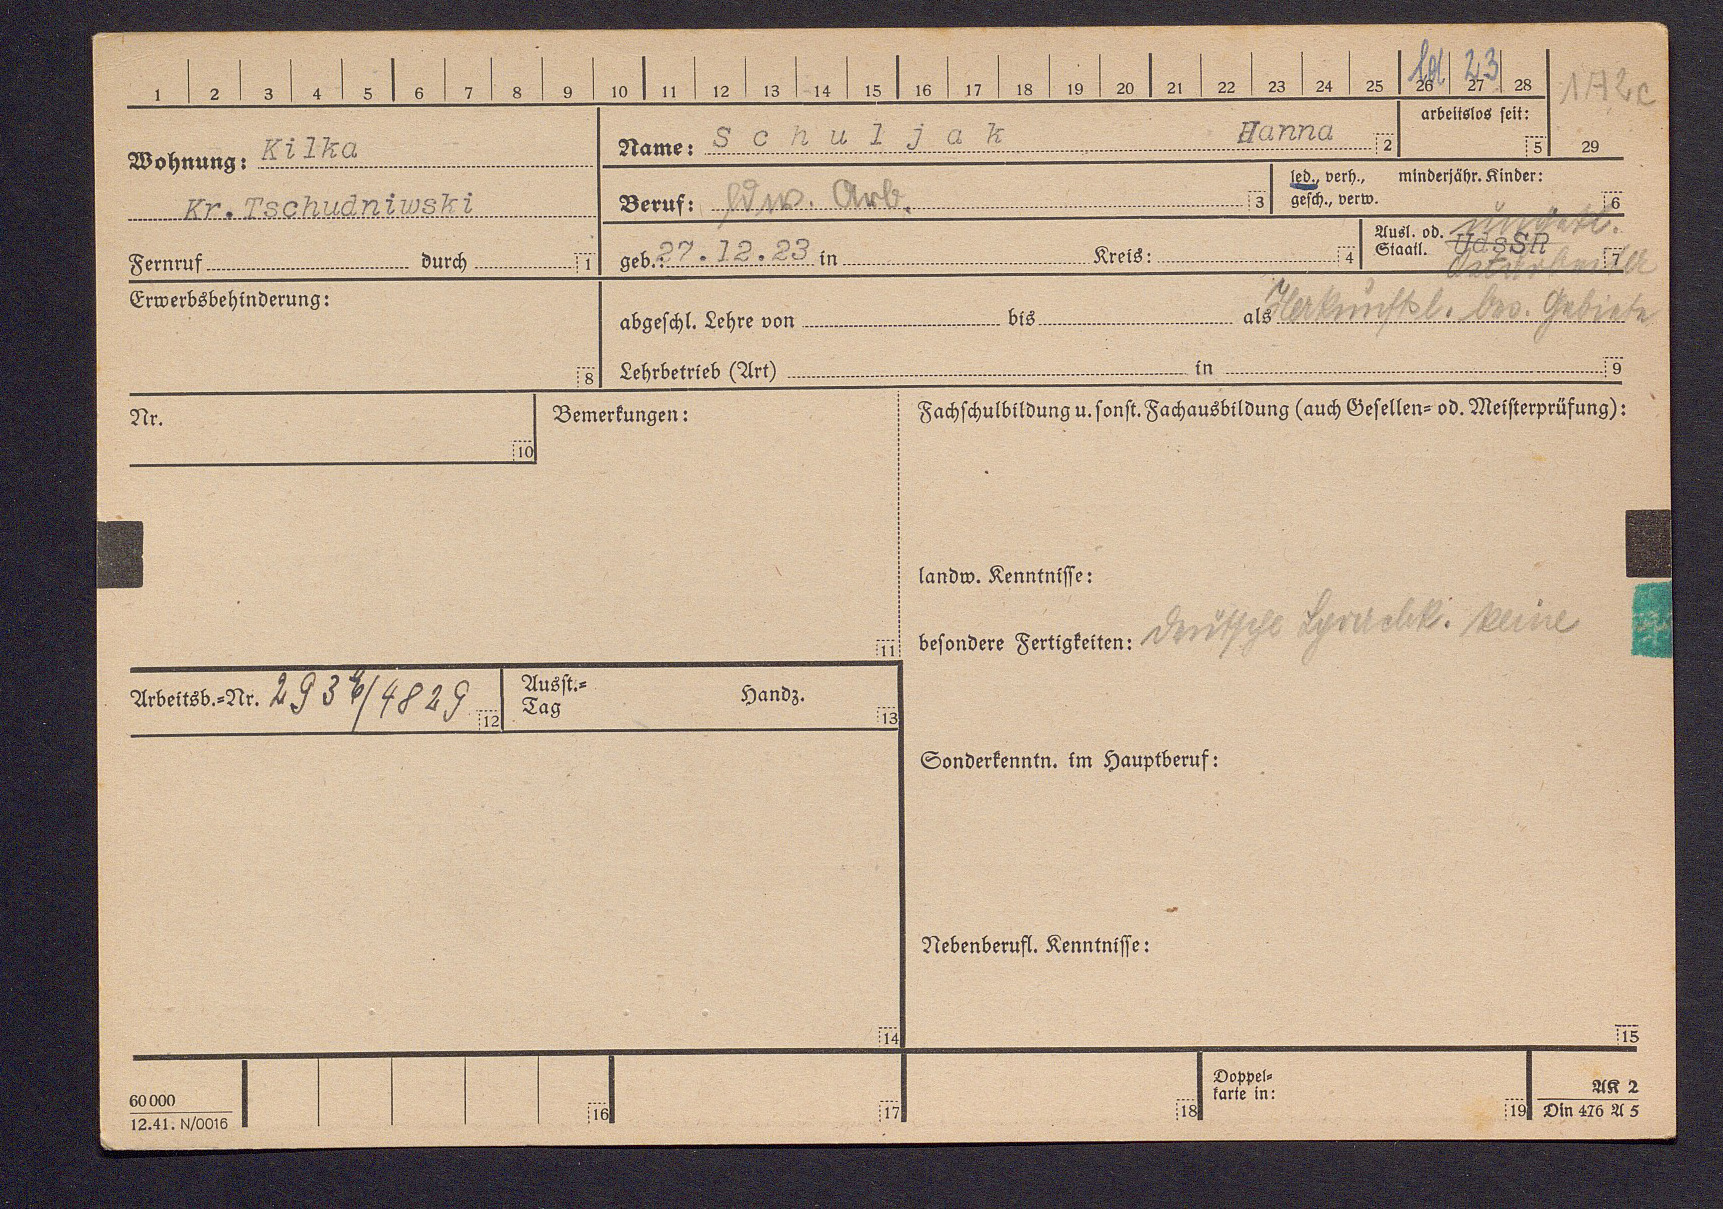 led 23
1 2 3 4 5 6 7 8 9 10 11 12 13 14 15 16 17 18 19 20 21 22 23 24 25 26 27 28
1A2c
29
Wohnung: Kilka
Kr. Tschudniwski
Fernruf durch 1
Name: Schuljak Hanna 2
arbeitslos seit: 5
Beruf: ldw. Arb. 3
led., verh., minderjähr. Kinder:
gesch., verw. 6
geb.: 27.12.23 in Kreis: 4
Ausl. od. Staatl. UdSSR 7
ungekl.
Ostarbeiter
Herkunftsl. bes. Gebiete
Erwerbsbehinderung:
8
abgeschl. Lehre von bis als
Lehrbetrieb (Art) in 9
Nr.
10
Bemerkungen:
11
Fachschulbildung u. sonst. Fachausbildung (auch Gesellen- od. Meisterprüfung):
landw. Kenntnisse:
besondere Fertigkeiten: deutsche Sprachk. keine
Arbeitsb.-Nr. 293b/4829 12
Ausst.-
Tag
Handz. 13
Sonderkenntn. im Hauptberuf:
Nebenberufl. Kenntnisse:
14
15
60000
12.41. N/0016
16
17
18
Doppel-
karte in:
19
AK 2
Din 476 A 5